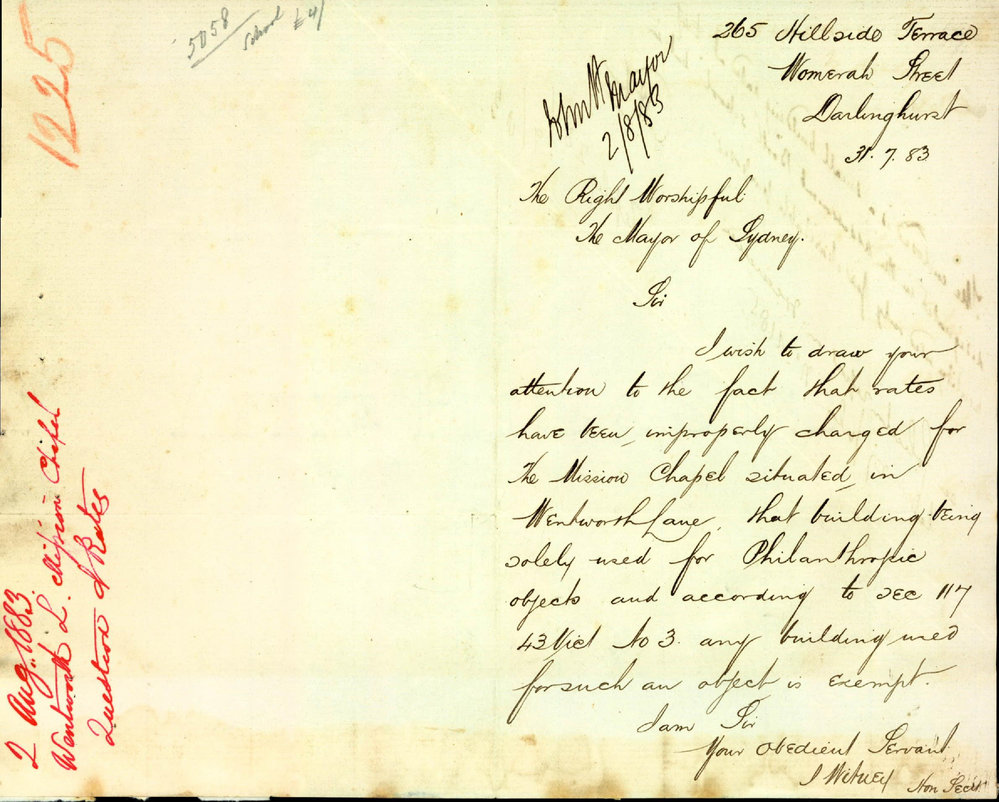 1225
5058
School £4/
265 Hillside Terrace
Womerah Street
Darlinghurst
31. 7. 83
Mayor
2/8/83
The Right Worshipful
The Mayor of Sydney.
Sir
I wish to draw your
attention to the fact that rates
have been improperly charged for
The Mission Chapel situated in
Wentworth Lane, that building being
solely used for Philanthropic
objects and according to sec 117
43 Vict No 3. any building used
for such an object is exempt.
I am Sir
Your Obedient Servant
J Witney Hon Sect
2 Aug. 1883
Wentworth L. Mission Chapel
Question of Rates